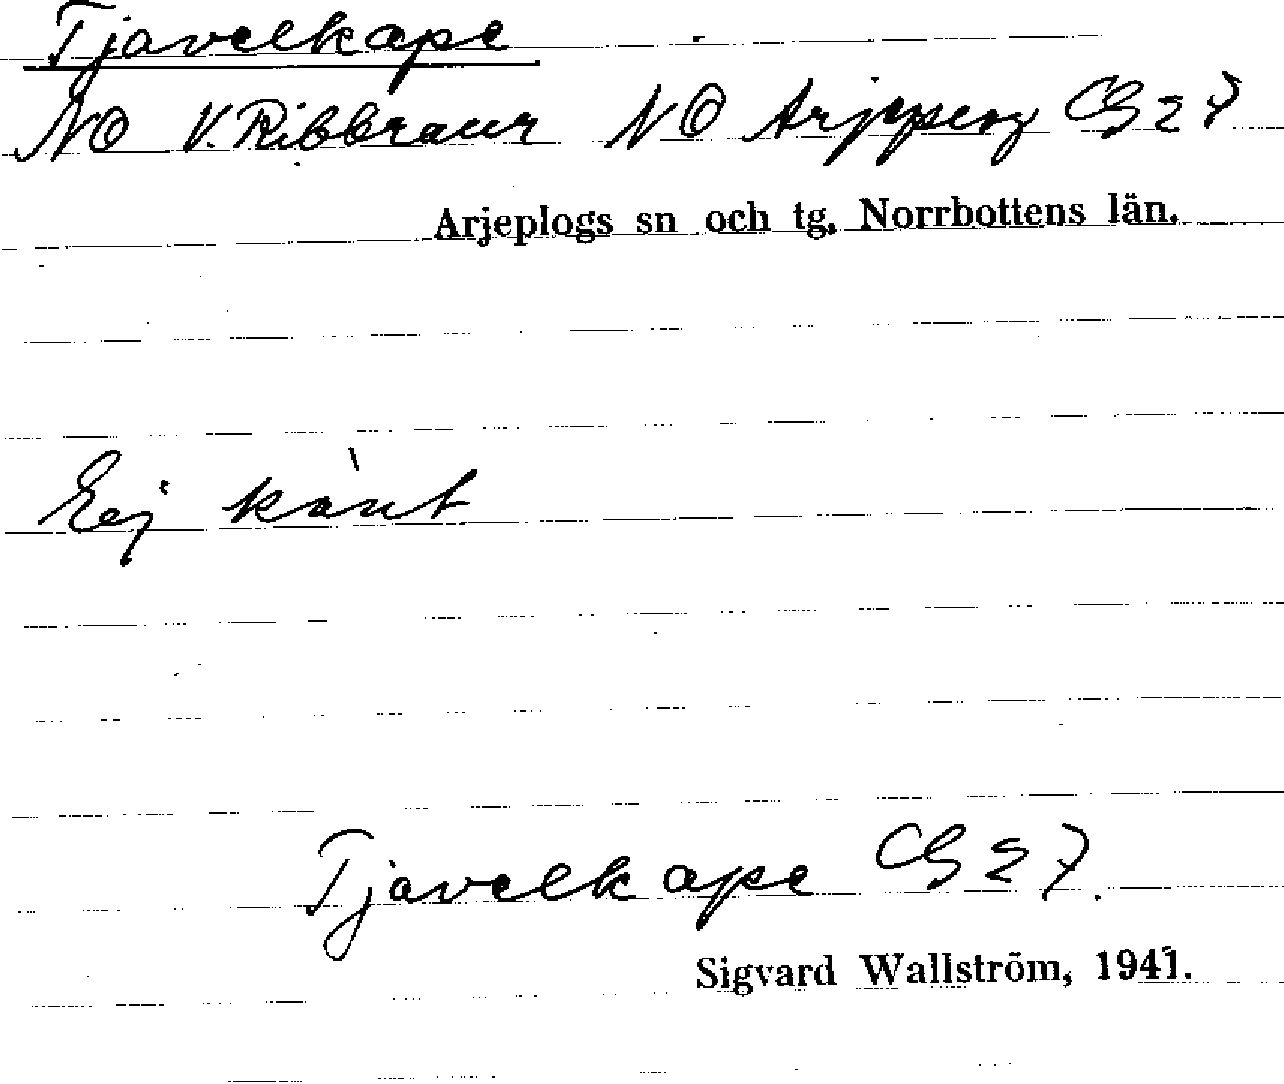 Tjavelkape
NO V. Ribbraur NO Arjepperg CG 27
Arjeplogs sn och tg. Norrbottens län.
Ej känt
Tjavelkape CG 27.
Sigvard Wallström, 1941.